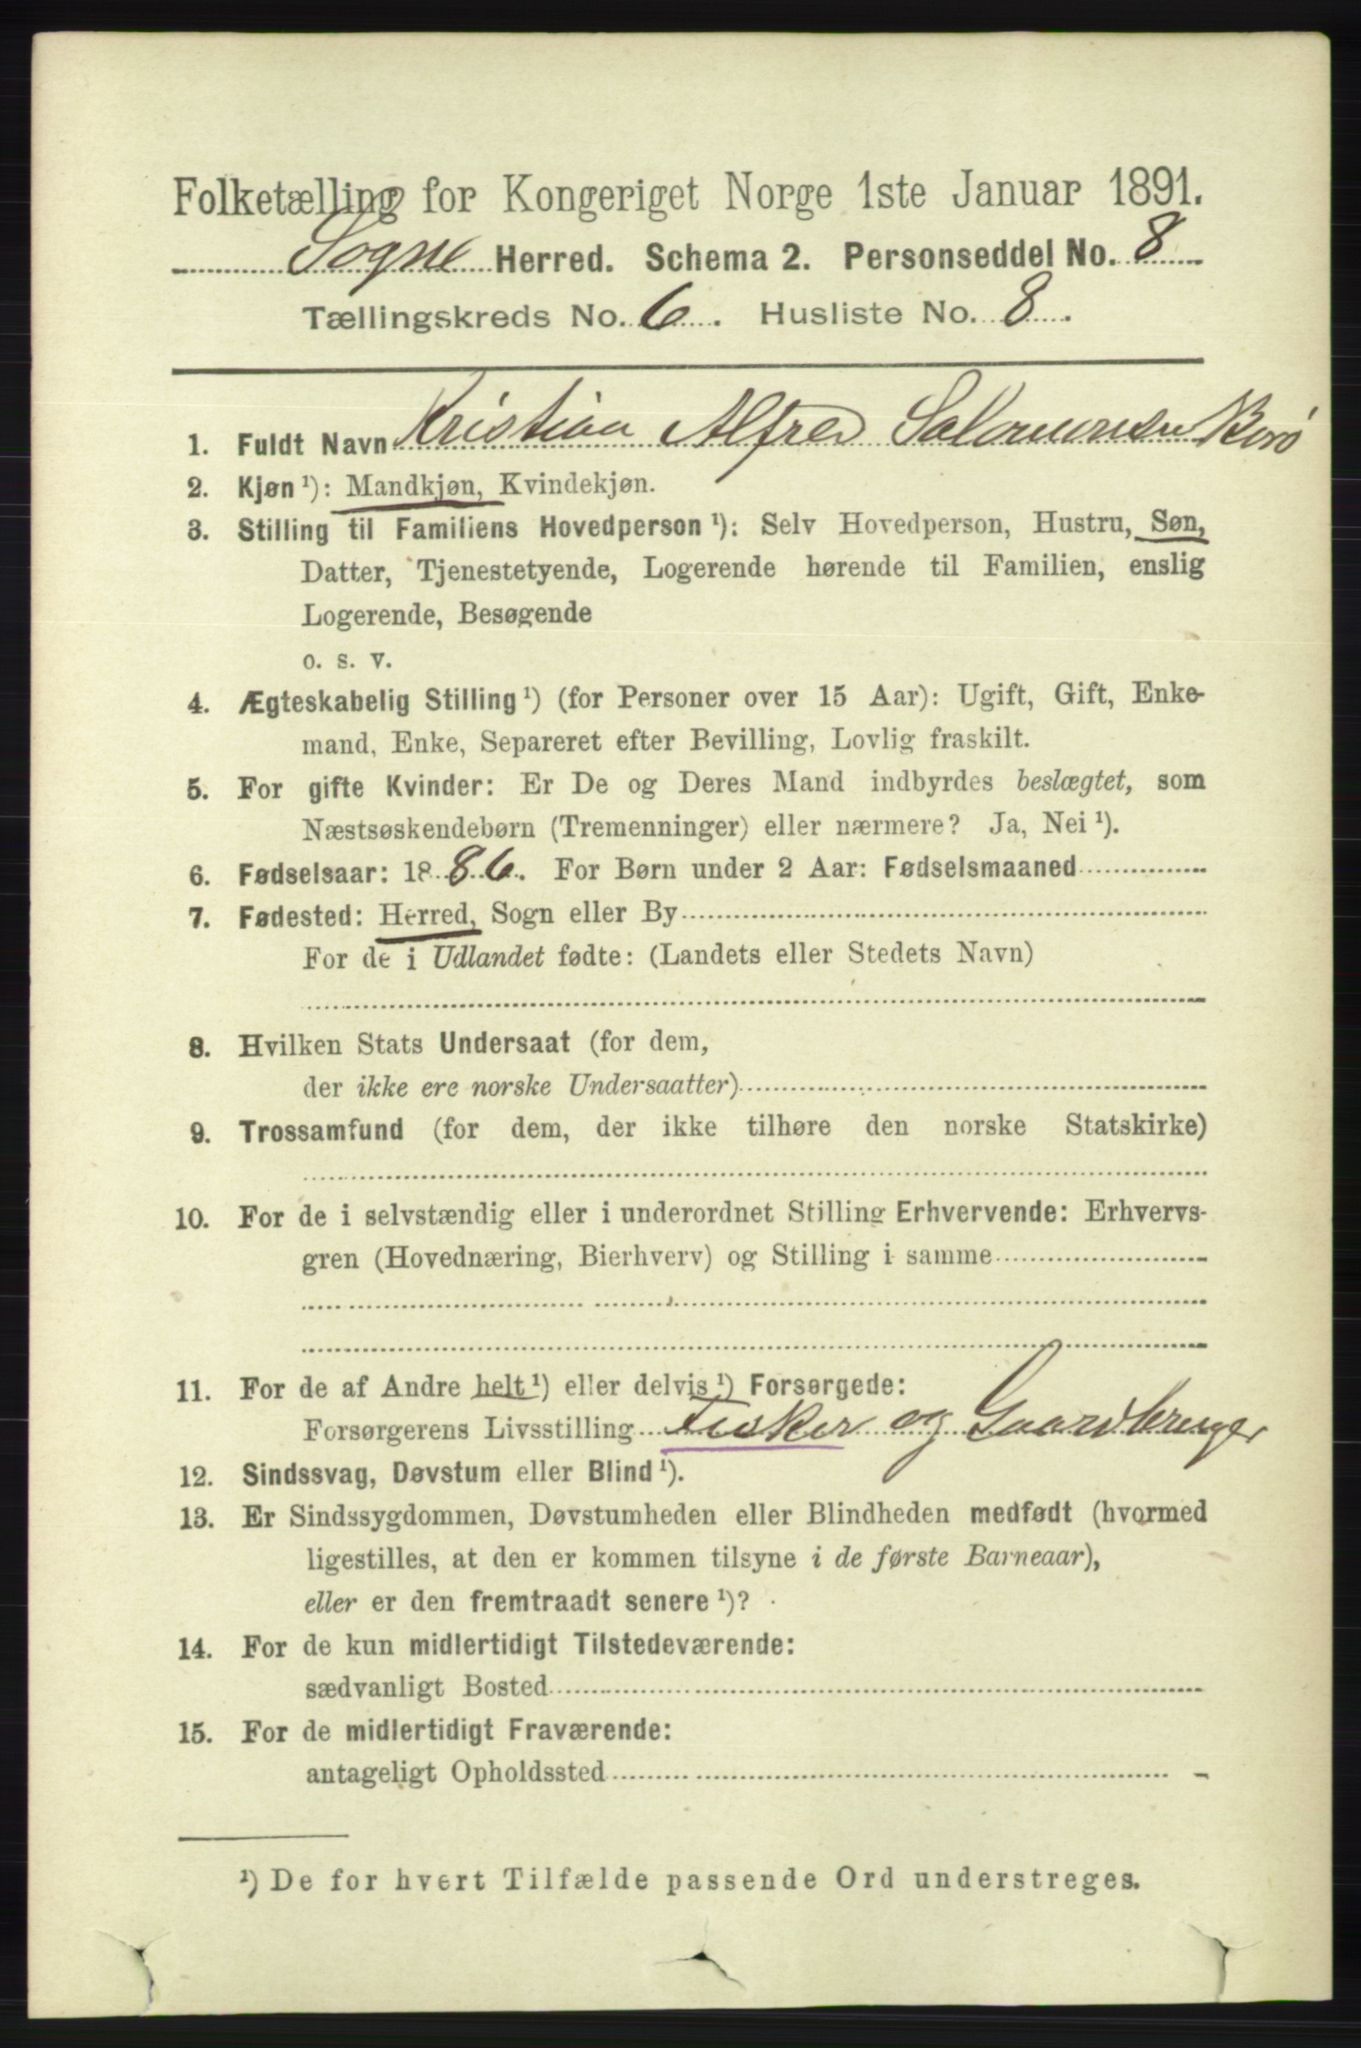 Folketælling for Kongeriget Norge 1ste Januar 1891.
Sogne Herred. Schema 2. Personseddel No. 8
Tællingskreds No. 6. Husliste No. 8.
1. Fuldt Navn Kristian Alfred Salomonsen Borø
2. Kjøn ¹): Mandkjøn, Kvindekjøn.
3. Stilling til Familiens Hovedperson ¹): Selv Hovedperson, Hustru, Søn,
Datter, Tjenestetyende, Logerende hørende til Familien, enslig
Logerende, Besøgende
o. s. v.
4. Ægteskabelig Stilling ¹) (for Personer over 15 Aar): Ugift, Gift, Enke-
mand, Enke, Separeret efter Bevilling, Lovlig fraskilt.
5. For gifte Kvinder: Er De og Deres Mand indbyrdes beslægtet, som
Næstsøskendebørn (Tremenninger) eller nærmere? Ja, Nei ¹).
6. Fødselsaar: 1886. For Børn under 2 Aar: Fødselsmaaned
7. Fødested: Herred, Sogn eller By
For de i Udlandet fødte: (Landets eller Stedets Navn)
8. Hvilken Stats Undersaat (for dem,
der ikke ere norske Undersaatter)
9. Trossamfund (for dem, der ikke tilhøre den norske Statskirke)
10. For de i selvstændig eller i underordnet Stilling Erhvervende: Erhvervs-
gren (Hovednæring, Bierhverv) og Stilling i samme
11. For de af Andre helt ¹) eller delvis ¹) Forsørgede:
Forsørgerens Livsstilling Fisker og Gaardbruger
12. Sindssvag, Døvstum eller Blind ¹).
13. Er Sindssygdommen, Døvstumheden eller Blindheden medfødt (hvormed
ligestilles, at den er kommen tilsyne i de første Barneaar),
eller er den fremtraadt senere ¹)?
14. For de kun midlertidigt Tilstedeværende:
sædvanligt Bosted
15. For de midlertidigt Fraværende:
antageligt Opholdssted
¹) De for hvert Tilfælde passende Ord understreges.